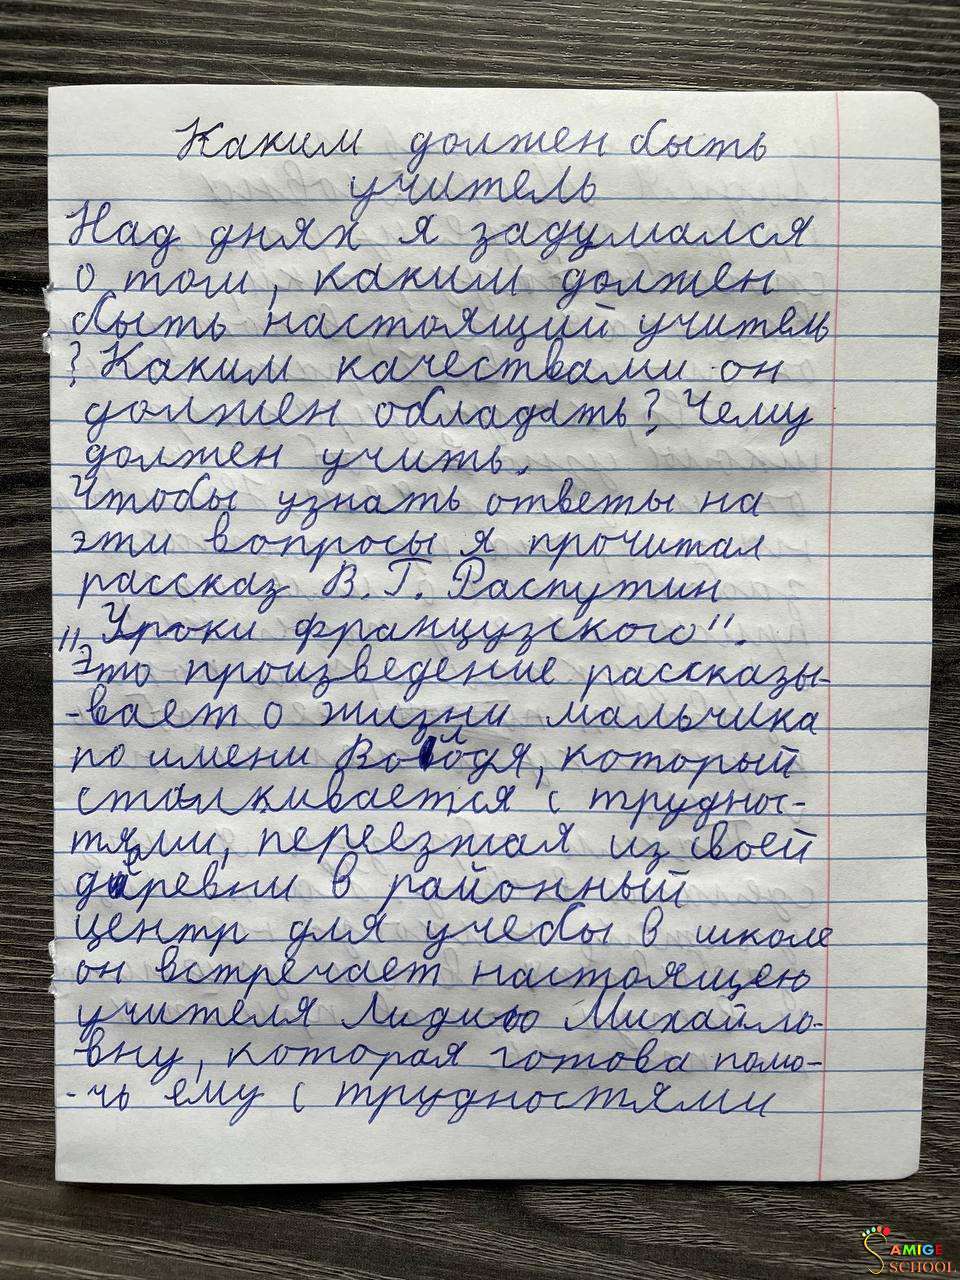 Каким должен быть
учитель
Над днях я задумался
о том, каким должен
быть настоящий учитель
? Каким качествами он
должен обладать? Чему
должен учить.
Чтобы узнать ответы на
эти вопросы я прочитал
рассказ В. Г. Распутин
„Уроки французского".
Это произведение рассказы-
-вает о жизни мальчика
по имени Володя, который
сталкивается с труднос-
тями, переезжая из своей
деревни в районный
центр для учебы в школе
он встречает настоящею
учителя Лидию Михайло-
вну, которая готова помо-
-чь ему с трудностями
SAMIGE
SCHOOL